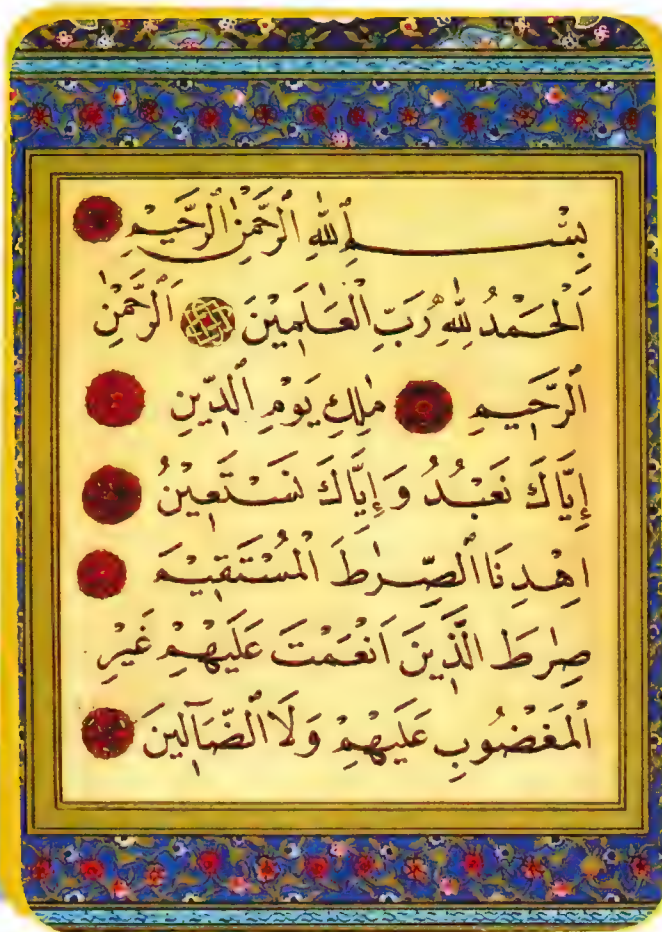 بِسْمِ ٱللّٰهِ ٱلرَّحْمٰنِ ٱلرَّحِيْمِ
اَلْحَمْدُ لِلّٰهِ رَبِّ الْعَـٰلَمِيْنَ اَلرَّحْمٰنِ
ٱلرَّحِيْمِ مٰلِكِ يَوْمِ ٱلدِّيْنِ
إِيَّاكَ نَعْبُدُ وَإِيَّاكَ نَسْتَعِيْنُ
اهْدِنَا ٱلصِّرٰطَ الْمُسْتَقِيْمَ
صِرٰطَ الَّذِيْنَ اَنْعَمْتَ عَلَيْهِمْ غَيْرِ
الْمَغْضُوبِ عَلَيْهِمْ وَلَا ٱلضَّآلِّيْنَ